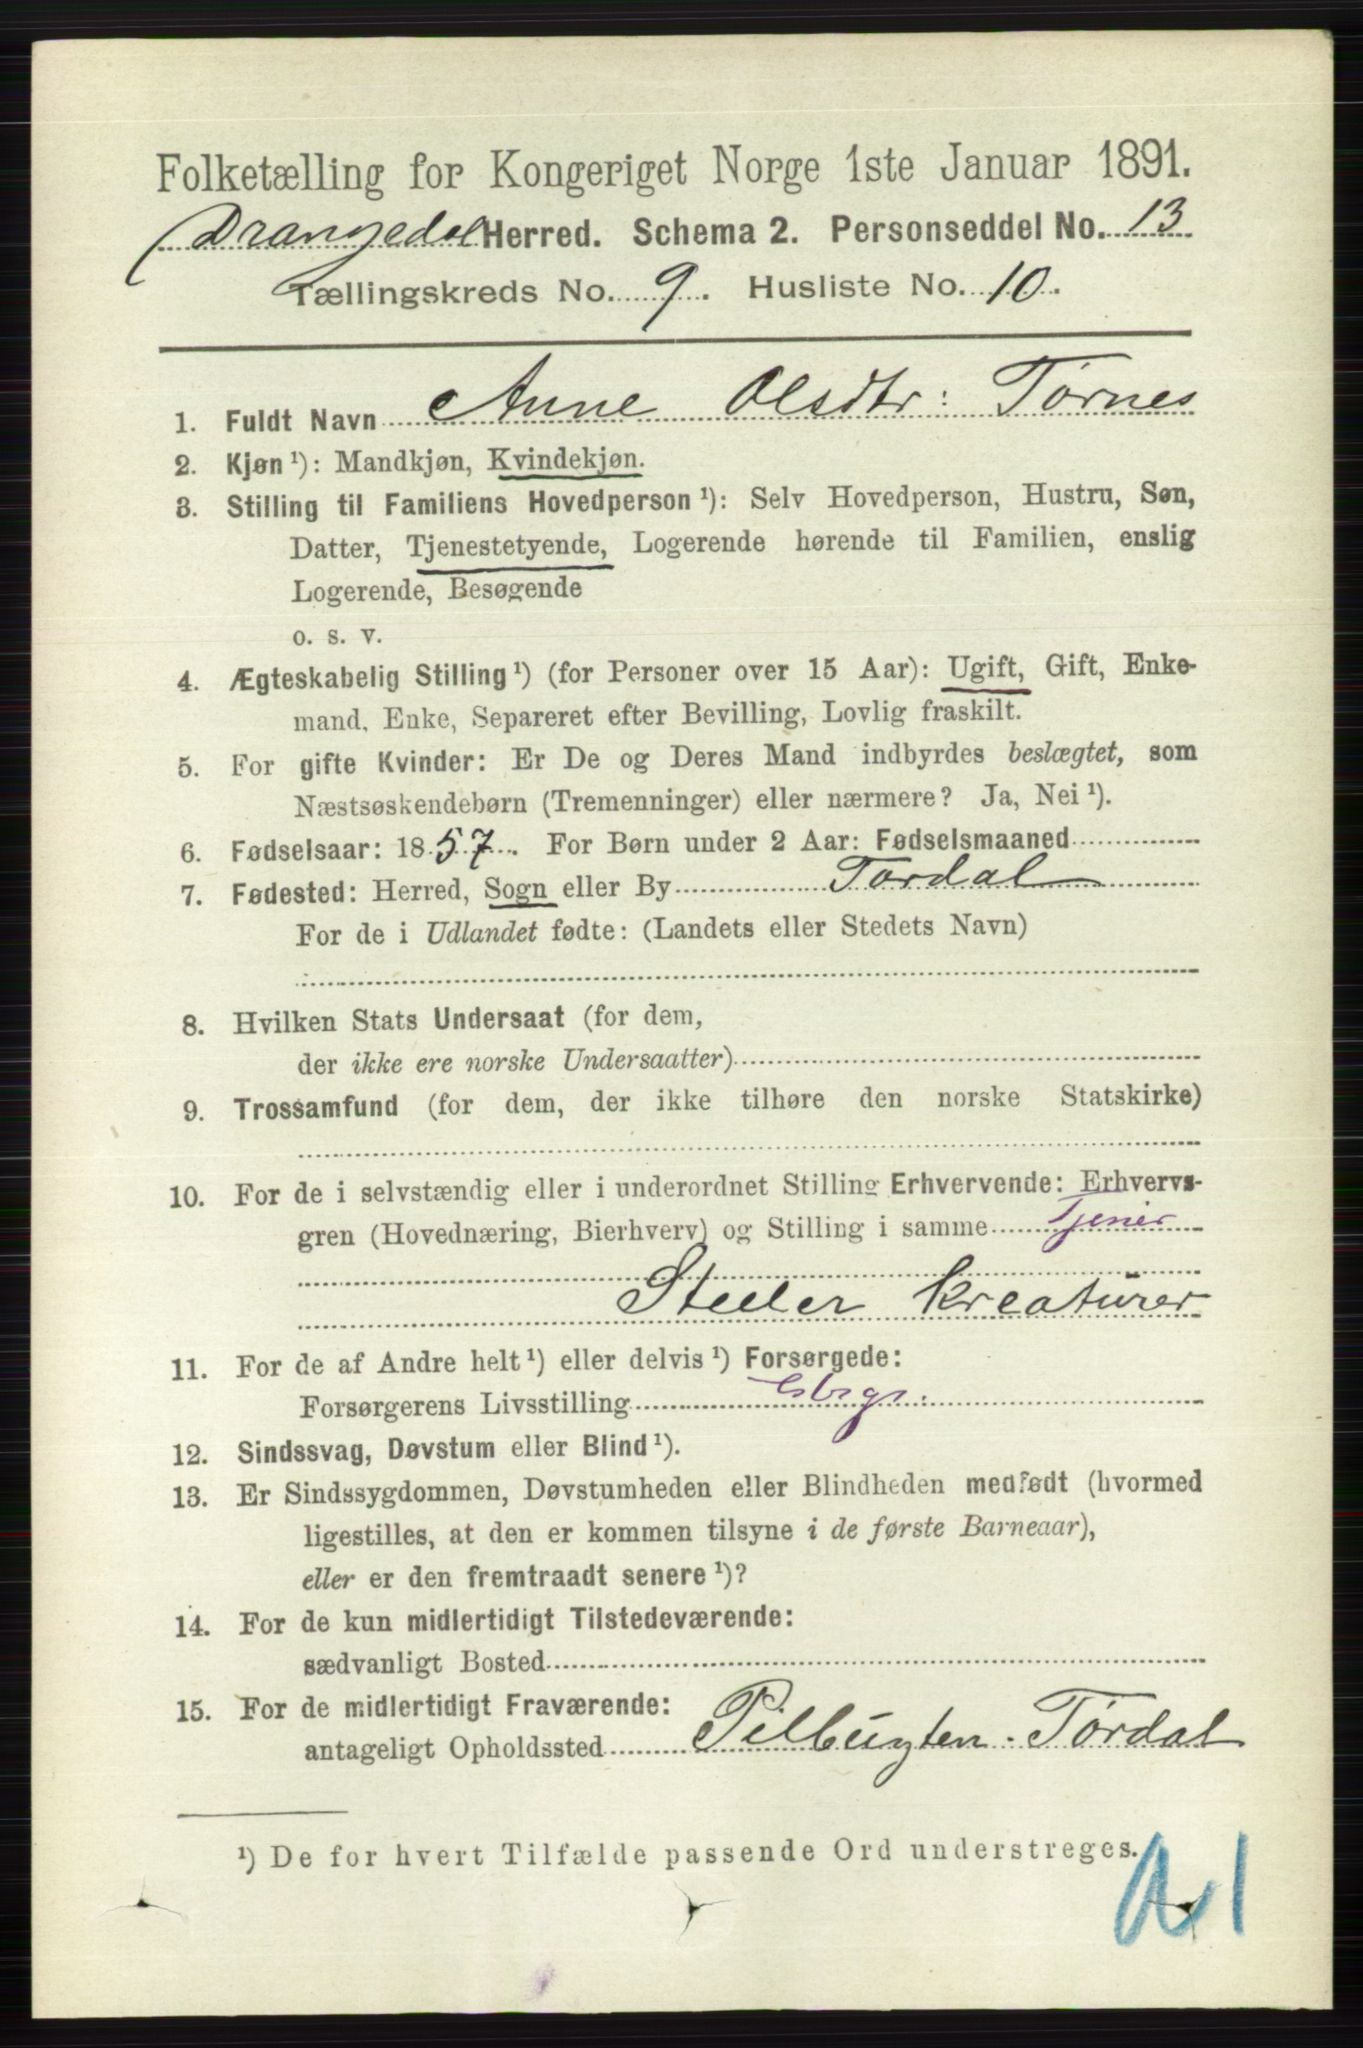 Folketælling for Kongeriget Norge 1ste Januar 1891.
Drangedal Herred. Schema 2. Personseddel No. 13
Tællingskreds No. 9. Husliste No. 10.
1. Fuldt Navn Anne Olsdtr: Tørnes
2. Kjøn ¹): Mandkjøn, Kvindekjøn.
3. Stilling til Familiens Hovedperson ¹): Selv Hovedperson, Hustru, Søn,
Datter, Tjenestetyende, Logerende hørende til Familien, enslig
Logerende, Besøgende
o. s. v.
4. Ægteskabelig Stilling ¹) (for Personer over 15 Aar): Ugift, Gift, Enke-
mand, Enke, Separeret efter Bevilling, Lovlig fraskilt.
5. For gifte Kvinder: Er De og Deres Mand indbyrdes beslægtet, som
Næstsøskendebørn (Tremenninger) eller nærmere? Ja, Nei ¹).
6. Fødselsaar: 1857. For Børn under 2 Aar: Fødselsmaaned
7. Fødested: Herred, Sogn eller By Tørdal
For de i Udlandet fødte: (Landets eller Stedets Navn)
8. Hvilken Stats Undersaat (for dem,
der ikke ere norske Undersaatter)
9. Trossamfund (for dem, der ikke tilhøre den norske Statskirke)
10. For de i selvstændig eller i underordnet Stilling Erhvervende: Erhvervs-
gren (Hovednæring, Bierhverv) og Stilling i samme Tjener
Steller Kreaturer
11. For de af Andre helt ¹) eller delvis ¹) Forsørgede:
Forsørgerens Livsstilling
12. Sindssvag, Døvstum eller Blind ¹).
13. Er Sindssygdommen, Døvstumheden eller Blindheden medfødt (hvormed
ligestilles, at den er kommen tilsyne i de første Barneaar),
eller er den fremtraadt senere ¹)?
14. For de kun midlertidigt Tilstedeværende:
sædvanligt Bosted
15. For de midlertidigt Fraværende:
antageligt Opholdssted Pilbugten. Tørdal
¹) De for hvert Tilfælde passende Ord understreges.